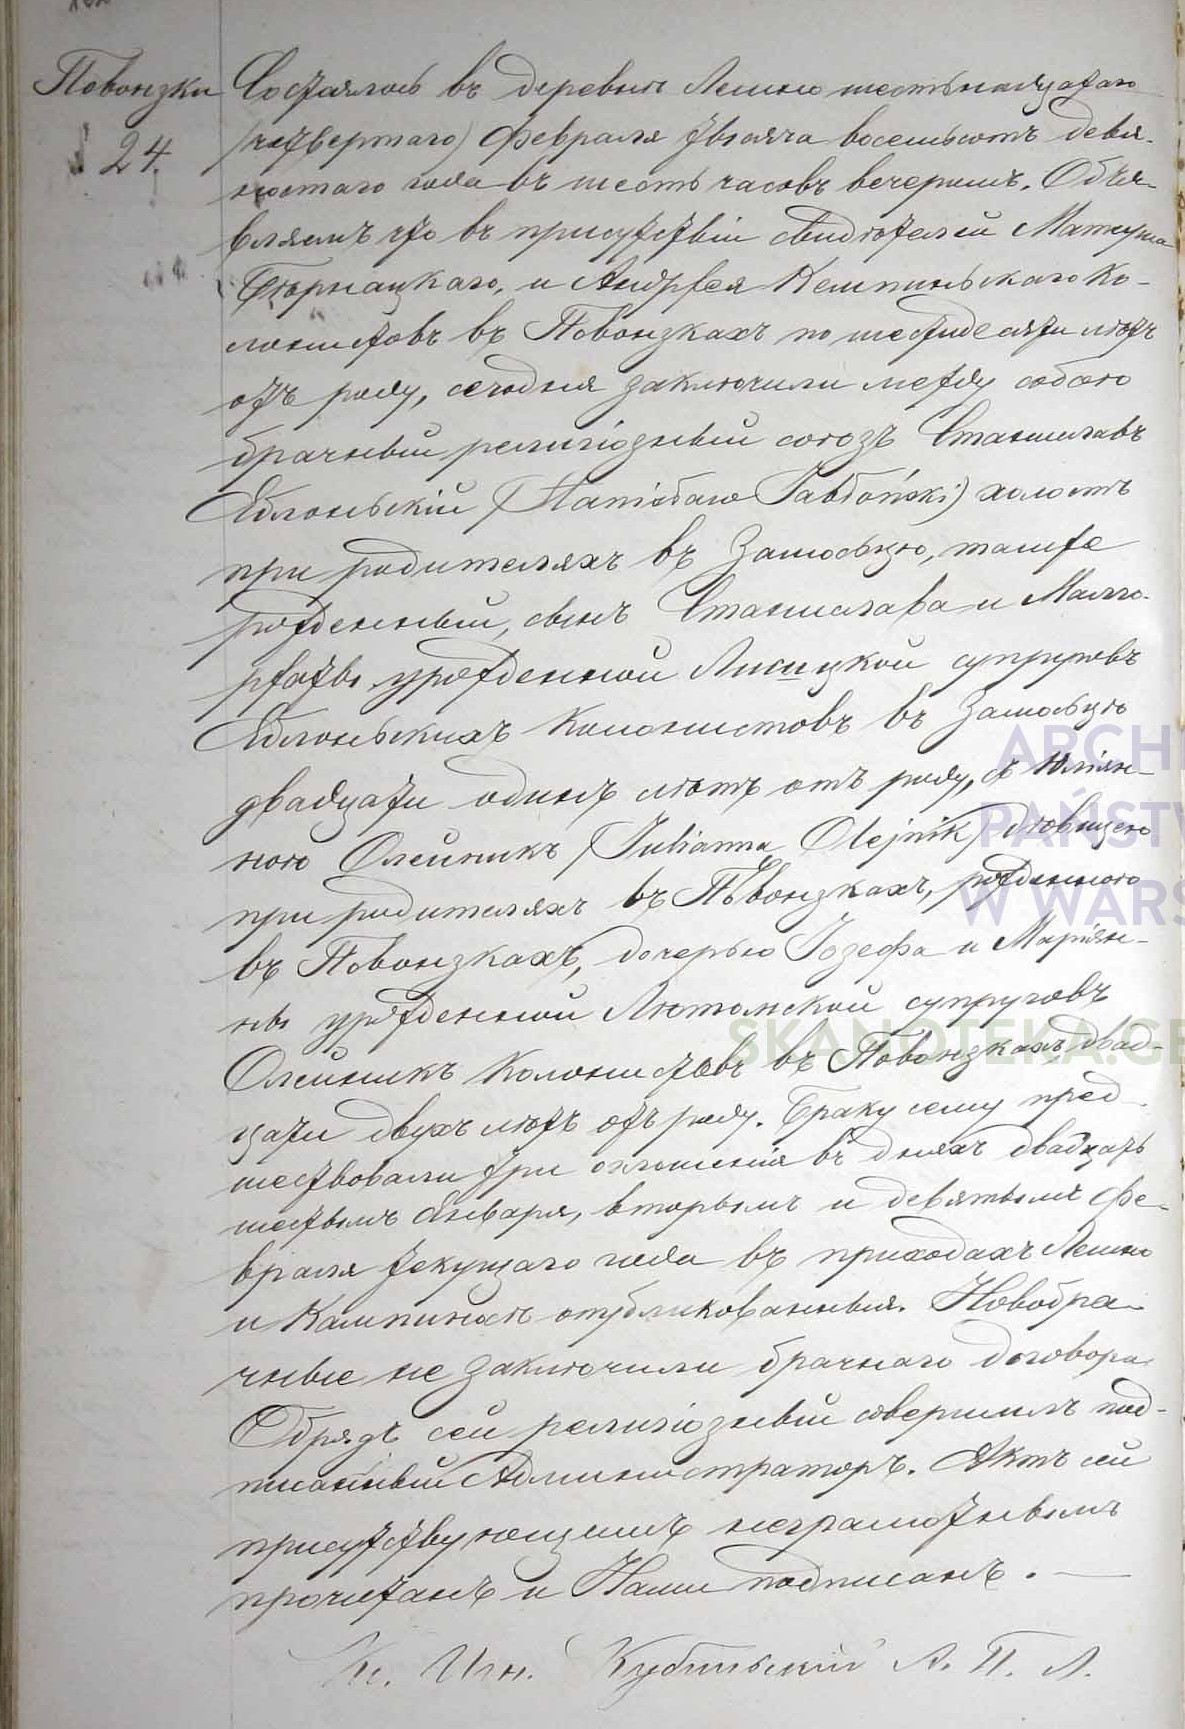 Повонзки
24.
Состоялось въ деревнѣ Лешно шестьнадцатаго
(четвертаго) Февраля тысяча восемьсотъ девя-
ностаго года въ шесть часовъ вечеромъ. Объя-
вляемъ что въ присутствіи свидѣтелей Матеуша
и Андрея Кемпиньскаго Ко-
лонистовъ въ Повонзкахъ по шестидесяти лѣтъ
отъ роду, сегодня заключили между собою
брачный религіозный союзъ Станиславъ
Яблоньскій (Stanisław Jabłoński) холостъ
при родителяхъ въ Замосьцю, тамже
рожденный, сынъ Станислава и Малго-
ржаты урожденной Лисицкой супруговъ
Яблоньскихъ Колонистовъ въ Замосьцю
двадцати одинъ лѣтъ отъ роду, съ Юліян-
ною Олейникъ (Julianna Olejnik) дѣвицею
при родителяхъ въ Повонзкахъ, рожденною
въ Повонзкахъ, дочерью Іозефа и Маріян-
ны урожденной Лютомской супруговъ
Олейникъ Колонистовъ въ Повонзкахъ двад-
цати двухъ лѣтъ отъ роду. Браку сему пред-
шествовали три оглошенія въ дняхъ двадцать
шестымъ Января, вторымъ и девятымъ Фе-
враля текущаго года въ приходахъ Лешно
и Кампиносъ опубликованныя. Новобра-
чные не заключили брачнаго договора.
Обрядъ сей религіозный совершилъ под-
писанный Администраторъ. Актъ сей
присутствующимъ неграмотнымъ
прочитанъ и Нами подписанъ. —
Кс. Игн. Кубиньскій А. П. Л.
ARCHI
PAŃSTW
W WARS
SKANOTEKA.GE